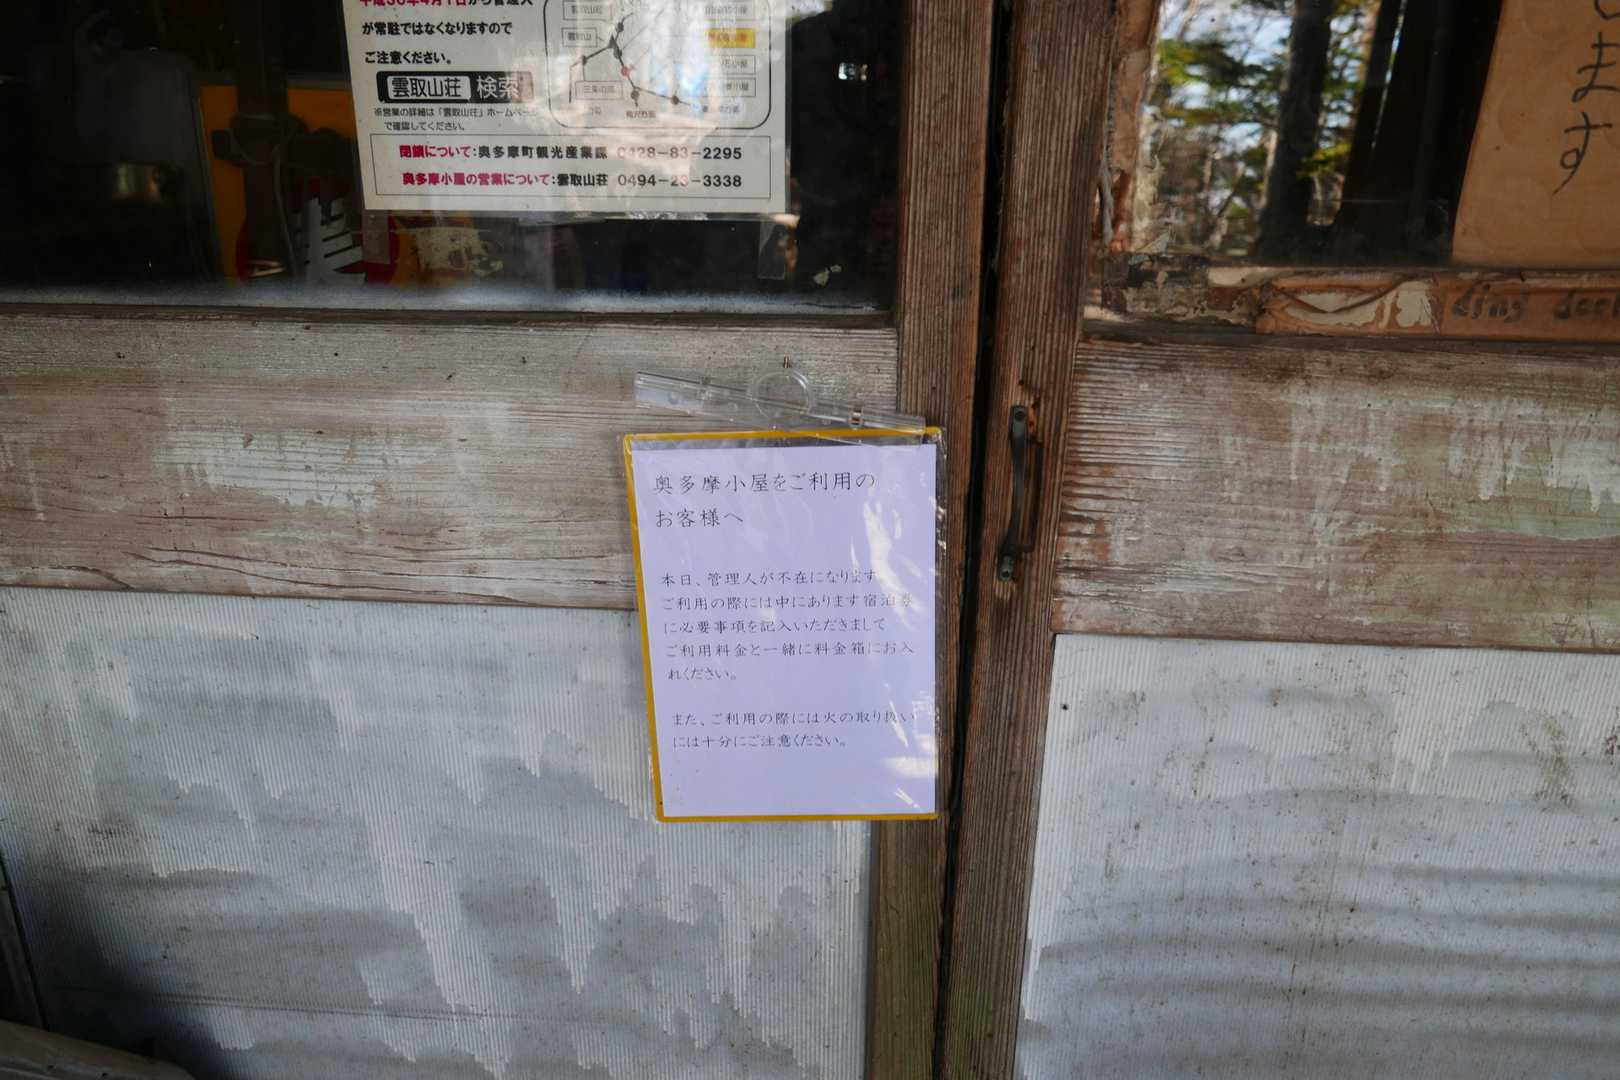 平成30年4月1日から管理人
が常駐ではなくなりますので
ご注意ください。
雲取山荘 検索
※営業の詳細は「雲取山荘」ホームページ
で確認してください。
雲取山
三条の湯
閉鎖について:奥多摩町観光産業課 0428-83-2295
奥多摩小屋の営業について:雲取山荘 0494-23-3338
ます
奥多摩小屋をご利用の
お客様へ
本日、管理人が不在になります
ご利用の際には中にあります宿泊券
に必要事項を記入いただきまして
ご利用料金と一緒に料金箱にお入
れください。
また、ご利用の際には火の取り扱い
には十分にご注意ください。